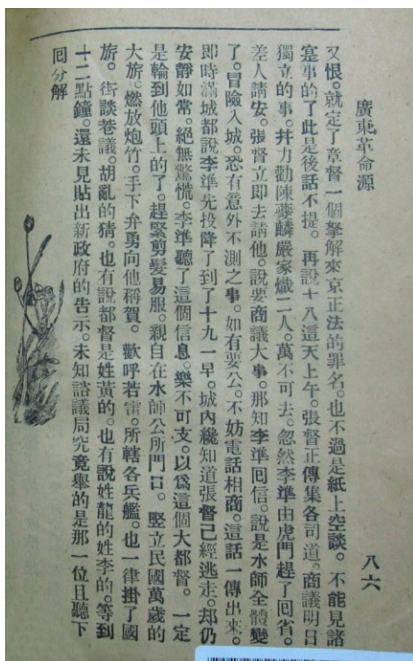 廣東革命源 八六
又恨。就定了章督一個拏解來京正法的罪名。也不過是紙上空談。不能見諸
寔事的了此是後話不提。再說十八這天上午。張督正傳集各司道。商議明日
獨立的事。幷力勸陳夔麟嚴家熾二人。萬不可去。忽然李準由虎門趕了回省。
差人請安。張督立即去請他。說要商議大事。那知李準回信。說是水師全體變
了。冒險入城。恐有意外不測之事。如有要公。不妨電話相商。這話一傳出來。
即時滿城都說李準先投降了到了十九一早。城內纔知道張督已經逃走。却仍
安靜如常。絕無驚慌。李準聽了這個信息。樂不可支。以爲這個大都督。一定
是輪到他頭上的了。趕緊剪髮易服。親自在水師公所門口。竪立民國萬歲的
大旂。燃放炮竹。手下弁勇向他稱賀。歡呼若雷。所轄各兵艦。也一律掛了國
旂。街談巷議。胡亂的猜。也有說都督是姓黃的。也有說姓龍的姓李的。等到
十二點鐘。還未見貼出新政府的告示。未知諮議局究竟舉的是那一位且聽下
回分解